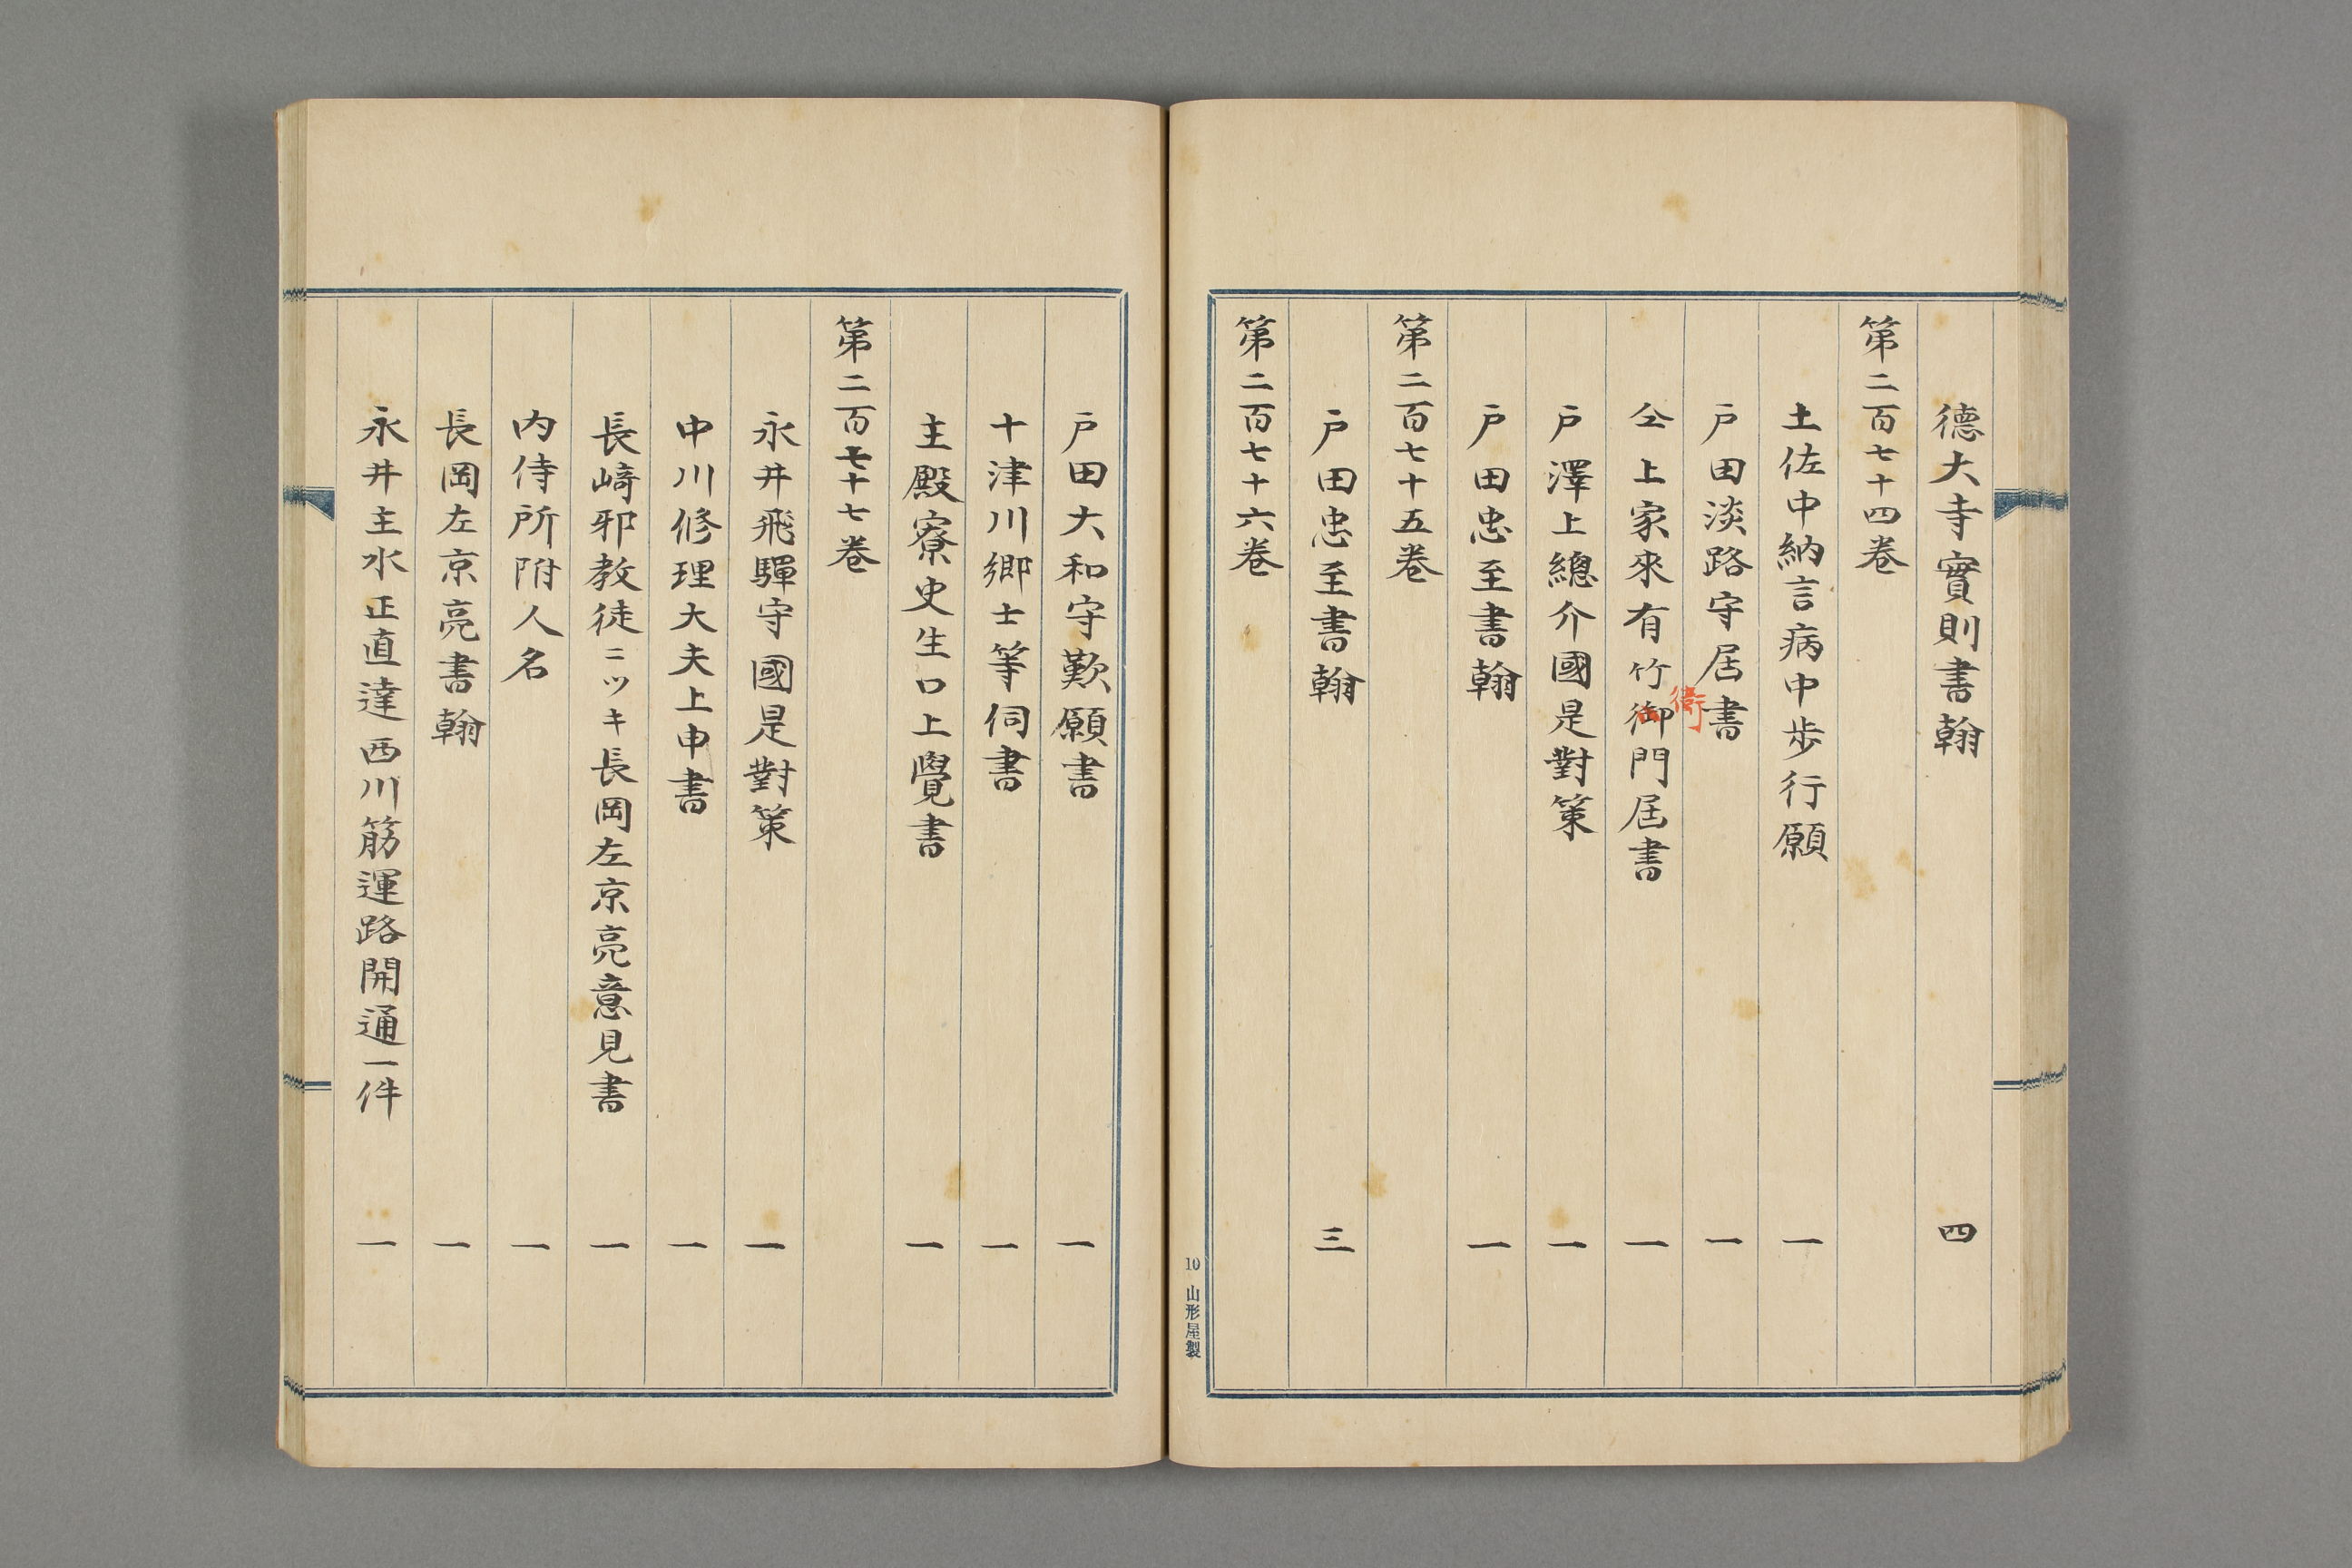 德大寺實則書翰 四
第二百七十四卷
土佐中納言病中步行願 一
戶田淡路守屆書 一
仝上家來有竹御門屆書 一
衞
戶澤上總介國是對策 一
戶田忠至書翰 一
第二百七十五卷
戶田忠至書翰 三
第二百七十六卷
10 山形屋製
戶田大和守歎願書 一
十津川鄉士等伺書 一
主殿寮史生口上覺書 一
第二百七十七卷
永井飛驒守國是對策 一
中川修理大夫上申書 一
長崎邪教徒ニツキ長岡左京亮意見書 一
內侍所附人名 一
長岡左京亮書翰 一
永井主水正直達西川筋運路開通一件 一